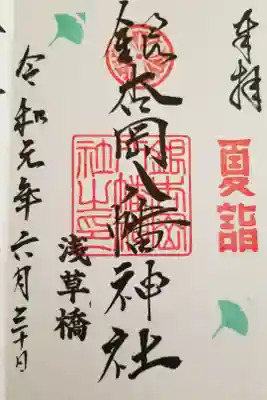 奉拝
夏詣
銀杏岡八幡神社
浅草橋
令和元年六月三十日